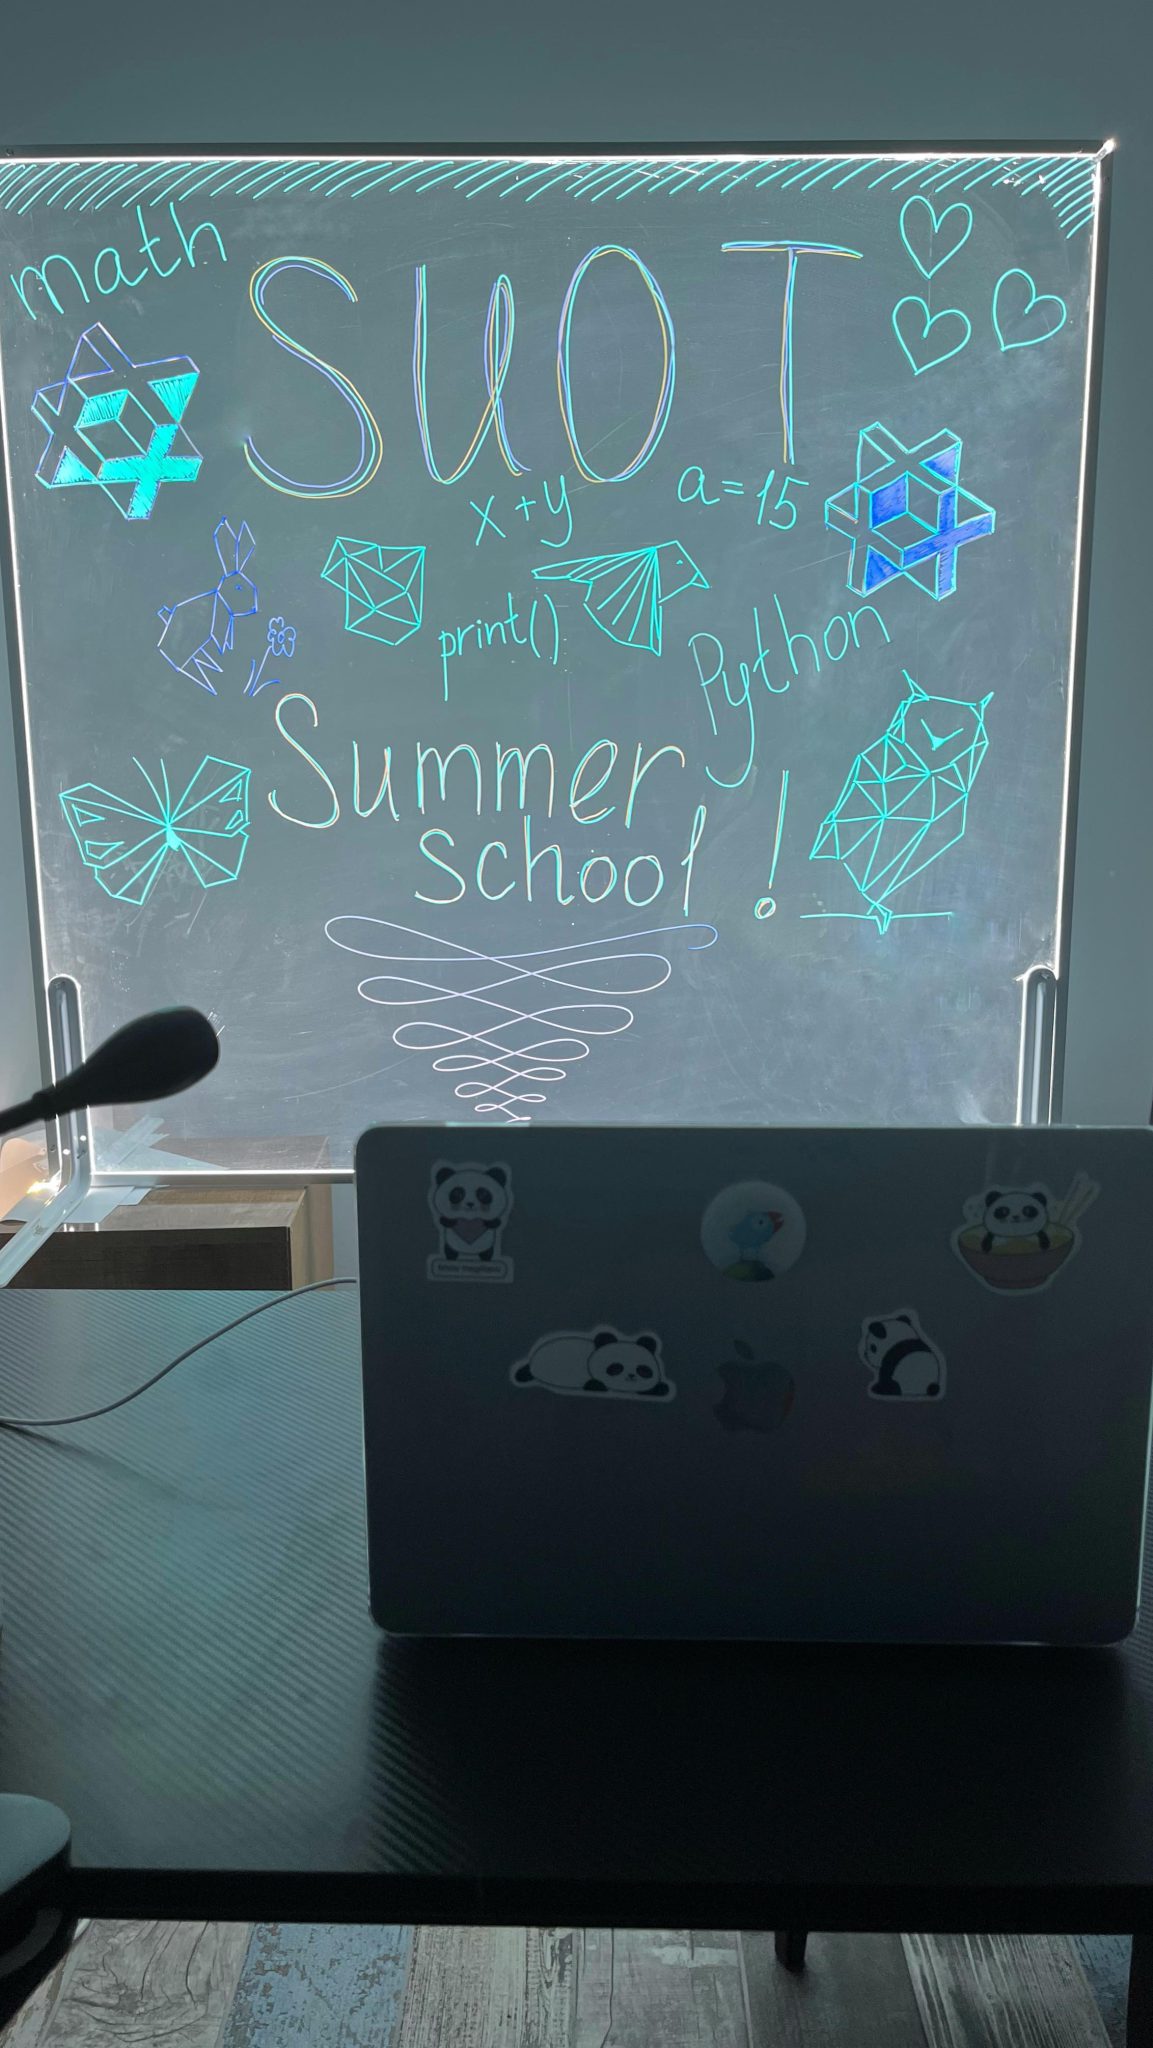 math
SUOT
x+y
a=15
print()
Python
Summer
school!